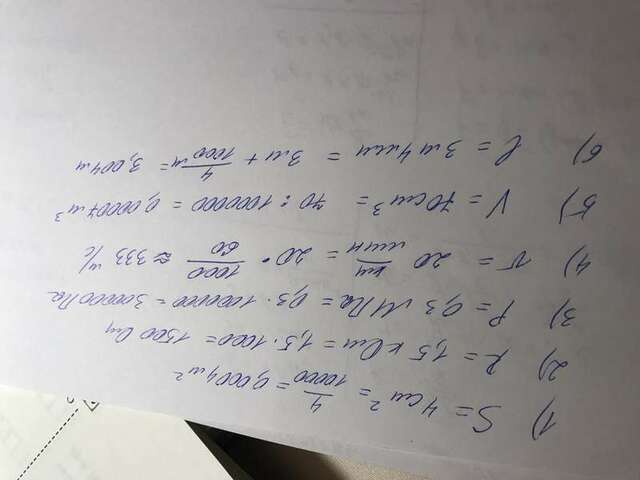 1) S = 4 см² = 4/10000 = 0,0004 м²
2) R = 1,5 кОм = 1,5 · 1000 = 1500 Ом
3) P = 0,3 МПа = 0,3 · 1000000 = 300000 Па
4) v = 20 км/мин = 20 · 1000/60 ≈ 333 м/с
5) V = 70 см³ = 70 : 1000000 = 0,00007 м³
6) l = 3 м 4 мм = 3 м + 4/1000 м = 3,004 м